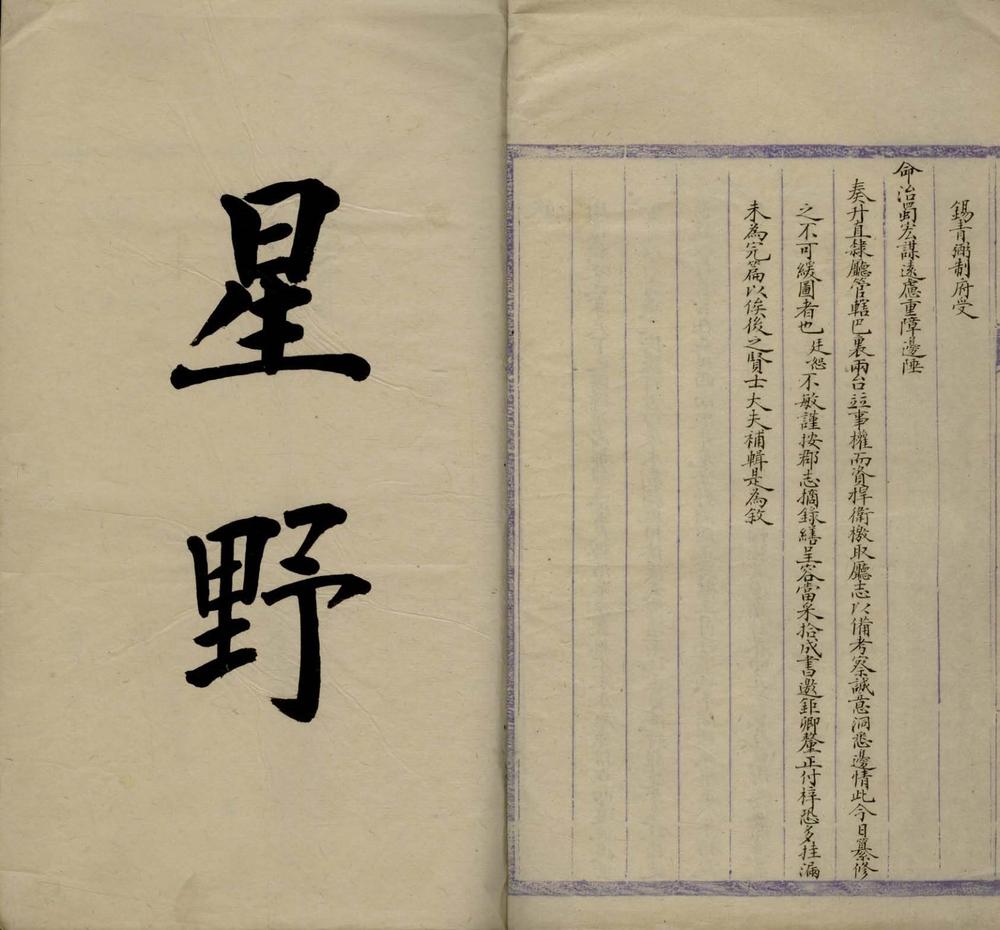 錫青弼制府受
命治蜀宏謀遠慮重障邊陲
奏升直隸廳管轄巴裏兩台並事權而資捍衛檄取廳志以備考察誠意洞悉邊情此今日纂修
之不可緩圖者也廷恕不敏謹按郡志摘錄繕呈容當采拾成書邀鉅卿釐正付梓恐多挂漏
未為完篇以俟後之賢士大夫補輯是為敘
星野